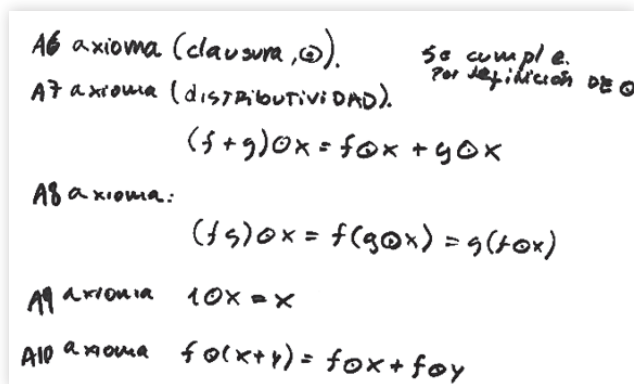 A6 axioma (clausura, ⊙). Se cumple.
Por definición DE ⊙
A7 axioma (DISTRIBUTIVIDAD).
(f + g)⊙x = f⊙x + g⊙x
A8 axioma:
(f g)⊙x = f(g⊙x) = g(f⊙x)
A9 axioma 1⊙x = x
A10 axioma f⊙(x+y) = f⊙x + f⊙y